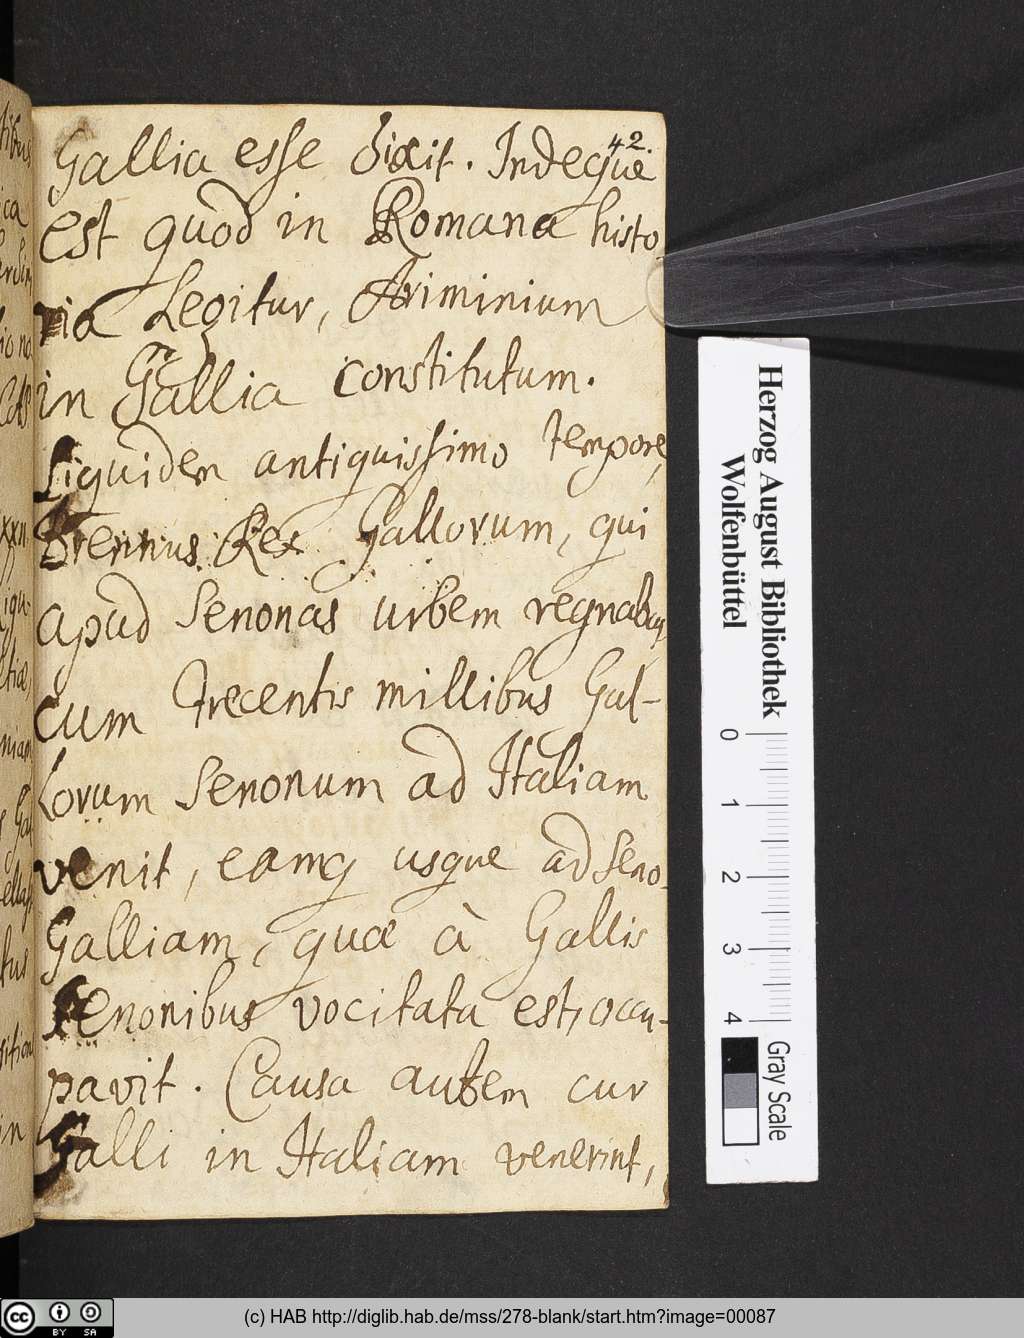 42.
Gallia esse dixit. Indeque
est quod in Romana histo
ria Legitur, Ariminium
in Gallia constitutum.
Siquidem antiquissimo tempore,
Brennus Rex Gallorum, qui
apud Senonas urbem regnabat,
cum Trecentis millibus Gal-
Lorum Senonum ad Italiam
venit, eamq usque ad Seno-
Galliam, quæ à Gallis
Senonibus vocitata est, occu-
pavit. Causa autem cur
Galli in Italiam venerint,
Herzog August Bibliothek
Wolfenbüttel
0 1 2 3 4
Gray Scale
(c) HAB http://diglib.hab.de/mss/278-blank/start.htm?image=00087
cc BY SA